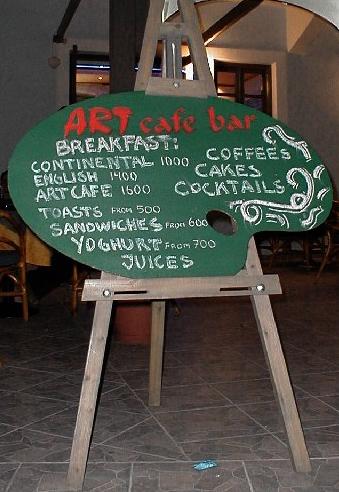 ART cafe bar
BREAKFAST:
CONTINENTAL 1000
ENGLISH 1400
ART CAFE 1600
COFFEES
CAKES
COCKTAILS
TOASTS FROM 500
SANDWICHES FROM 600
YOGHURT FROM 700
JUICES